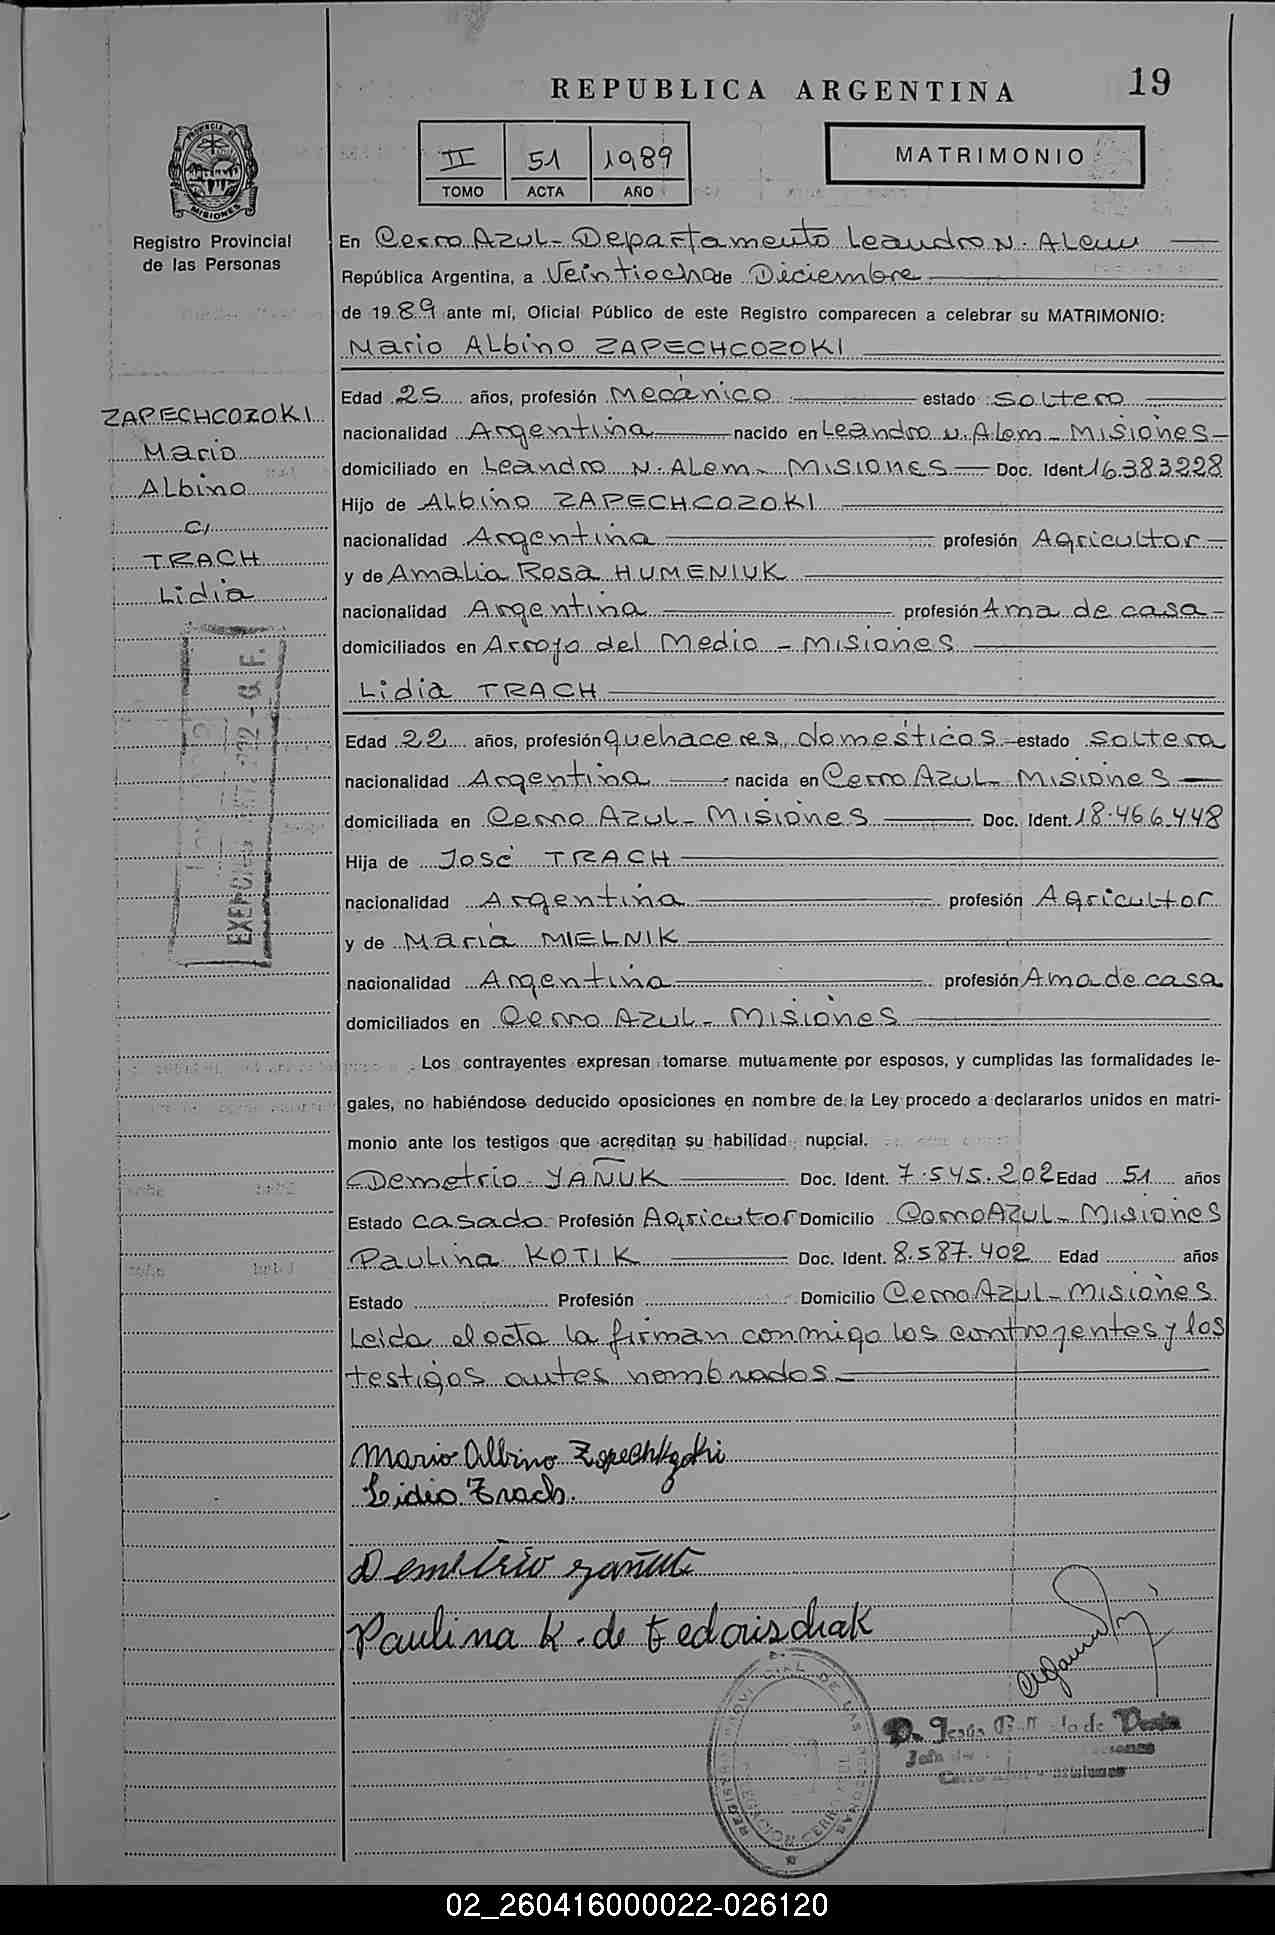 REPUBLICA ARGENTINA
19
II
51
1989
TOMO
ACTA
AÑO
MATRIMONIO
PROVINCIA DE
MISIONES
Registro Provincial
de las Personas
En Cerro AZUL - Departamento Leandro N. ALem
República Argentina, a Veintiocho de Diciembre
de 1989 ante mí, Oficial Público de este Registro comparecen a celebrar su MATRIMONIO:
Mario ALbino ZAPECHCOZOKI
ZAPECHCOZOKI
Mario
ALbino
C/
TRACH
Lidia
Edad 25 años, profesión Mecánico estado soltero
nacionalidad Argentina nacido en Leandro N. ALem - Misiones -
domiciliado en Leandro N. ALem - Misiones Doc. Ident. 16.383.228
Hijo de ALbino ZAPECHCOZOKI
nacionalidad Argentina profesión Agricultor -
y de AmaLia Rosa HUMENIUK
nacionalidad Argentina profesión Ama de casa -
domiciliados en Arroyo del Medio - Misiones
Lidia TRACH
Edad 22 años, profesión quehaceres domésticos estado soltera
nacionalidad Argentina nacida en Cerro AZUL - Misiones -
domiciliada en Cerro AZUL - Misiones Doc. Ident. 18.466.448
Hija de José TRACH
nacionalidad Argentina profesión Agricultor
y de María MIELNIK
nacionalidad Argentina profesión Ama de casa
domiciliados en Cerro AZUL - Misiones
Los contrayentes expresan tomarse mutuamente por esposos, y cumplidas las formalidades le-
gales, no habiéndose deducido oposiciones en nombre de la Ley procedo a declararlos unidos en matri-
monio ante los testigos que acreditan su habilidad nupcial.
Demetrio YAÑUK Doc. Ident. 7.545.202 Edad 51 años
Estado casado Profesión Agricutor Domicilio Cerro AZUL - Misiones
Paulina KOTIK Doc. Ident. 8.587.402 Edad años
Estado Profesión Domicilio Cerro AZUL - Misiones
Leida el acta la firman conmigo los contrayentes y los
testigos antes nombrados
Mario Albino Zapechkzoki
Lidia Trach
Demetrio Yañuk
Paulina K. de Fedorischak
REGISTRO PROVINCIAL DE LAS PERSONAS
DELEGACION CERRO AZUL
Jesús de
Cerro Azul - Misiones
02_260416000022-026120